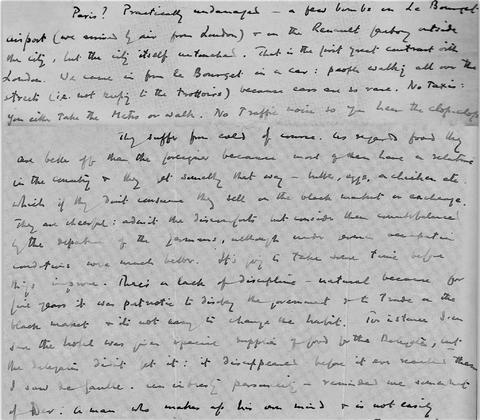 Paris? Practically undamaged – a few bombs on Le Bourget
airport (we arrived by air from London) & on the Renault factory outside
the city, but the city itself untouched. That is the first great contrast with
London. We came in from Le Bourget in a car: people walking all over the
streets (i.e. not keeping to the trottoirs) because cars are so rare. No taxis:
You either take the Metro or walk. No traffic noise so you hear the clop clop
They suffer from cold of course. As regards food they
are better off than the foreigner because most of them have a relative
in the country & they get something that way – butter, eggs, a chicken etc.
which if they don't consume they sell on the black market or exchange.
They are cheerful: admit the discomforts but consider them counterbalanced
by the departure of the Germans, although under German occupation
conditions were much better. It's going to take some time before
things improve. There's a lack of discipline – natural because for
five years it was patriotic to disobey the government & to trade on the
black market & it's not easy to change the habit. For instance I
saw the hotel was given special supplies of food for the Delegates, but
the delegates didn't get it: it disappeared before it ever reached them
I saw de Gaulle. An personality – reminded me somewhat
of Dev: a man who makes up his own mind & is not easily